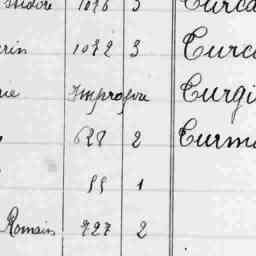 Isidore 1076 3 Curca
rin 1072 3 Curc
rie Impropre Curgi
628 2 Curm
55 1
Romain 727 2